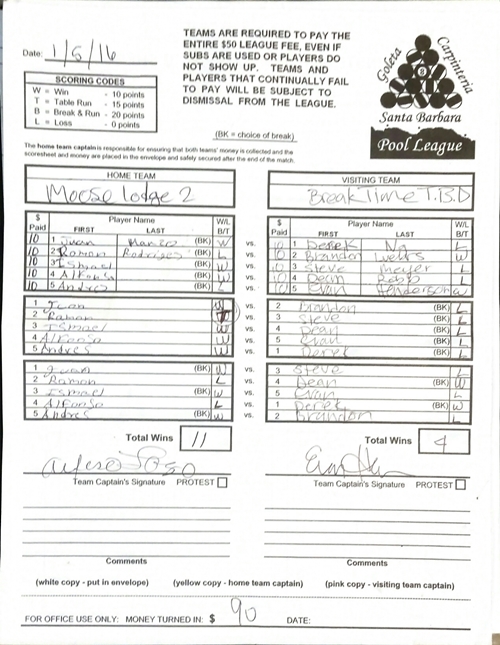 Date: 1/5/16
TEAMS ARE REQUIRED TO PAY THE
ENTIRE $50 LEAGUE FEE, EVEN IF
SUBS ARE USED OR PLAYERS DO
NOT SHOW UP. TEAMS AND
PLAYERS THAT CONTINUALLY FAIL
TO PAY WILL BE SUBJECT TO
DISMISSAL FROM THE LEAGUE.
SCORING CODES
W = Win - 10 points
T = Table Run - 15 points
B = Break & Run - 20 points
L = Loss - 0 points
(BK = choice of break)
Goleta
Carpinteria
8
Santa Barbara
Pool League
The home team captain is responsible for ensuring that both teams' money is collected and the
scoresheet and money are placed in the envelope and safely secured after the end of the match.
HOME TEAM
Moose Lodge 2
VISITING TEAM
Break Time T.B.D
$ Paid Player Name FIRST LAST W/L B/T
$ Paid Player Name FIRST LAST W/L B/T
10 1 Juan (BK) W vs. 10 1 Derek L
10 2 Ramon Rodriguez (BK) L vs. 10 2 Brandon Wells W
10 3 Ismael (BK) W vs. 10 3 Steve Meyer L
10 4 Alfonso (BK) W vs. 10 4 Dean L
10 5 Andres (BK) L vs. 10 5 Evan Henderson W
1 Juan W vs. 2 Brandon (BK) L
2 Ramon vs. 3 Steve (BK) L
3 Ismael W vs. 4 Dean (BK) L
4 Alfonso W vs. 5 Evan (BK) L
5 Andres W vs. 1 Derek (BK) L
1 Juan (BK) W vs. 3 Steve L
2 Ramon L vs. 4 Dean (BK) W
3 Ismael (BK) W vs. 5 Evan L
4 Alfonso L vs. 1 Derek (BK) W
5 Andres (BK) W vs. 2 Brandon L
Total Wins 11
Total Wins 4
Team Captain's Signature PROTEST
Team Captain's Signature PROTEST
Comments
Comments
(white copy - put in envelope) (yellow copy - home team captain) (pink copy - visiting team captain)
FOR OFFICE USE ONLY: MONEY TURNED IN: $ 90 DATE: